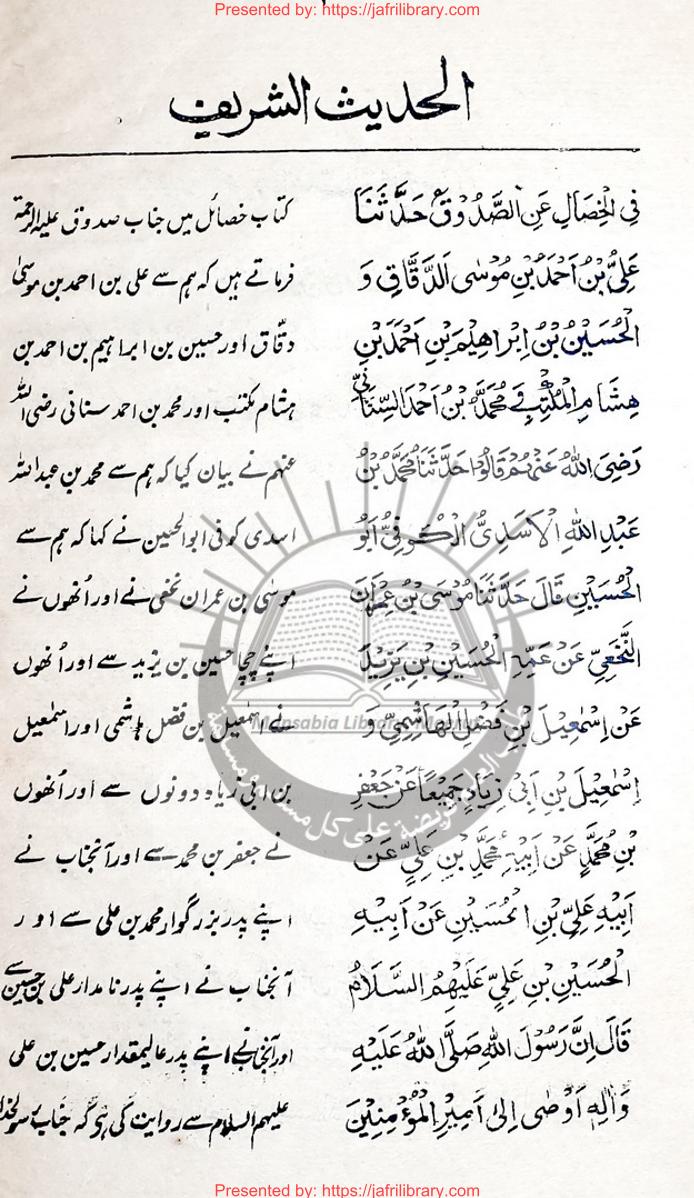 Presented by: https://jafrilibrary.com
الحدیث الشریف
فِی الْخِصَالِ عَنِ الصَّدُوْقِ حَدَّثَنَا
عَلِیُّ بْنُ اَحْمَدَ بْنِ مُوْسَی الدَّقَّاقِ وَ
الْحُسَیْنُ بْنُ اِبْرَاهِیْمَ بْنِ اَحْمَدَ بْنِ
هِشَامِ الْمُکَتِّبُ وَ مُحَمَّدُ بْنُ اَحْمَدَ السِّنَانِیُّ
رَضِیَ اللهُ عَنْهُمْ قَالُوْا حَدَّثَنَا مُحَمَّدُ بْنُ
عَبْدِ اللهِ الْاَسَدِیُّ الْکُوْفِیُّ اَبُو
الْحُسَیْنِ قَالَ حَدَّثَنَا مُوْسَی بْنُ عِمْرَانَ
النَّخَعِیِّ عَنْ عَمِّهِ الْحُسَیْنِ بْنِ یَزِیْدَ
عَنْ اِسْمٰعِیْلَ بْنِ فَضْلِ الْهَاشِمِیِّ وَ
اِسْمٰعِیْلَ بْنِ اَبِیْ زِیَادٍ جَمِیْعًا عَنْ جَعْفَرِ
بْنِ مُحَمَّدٍ عَنْ اَبِیْهِ مُحَمَّدِ بْنِ عَلِیٍّ عَنْ
اَبِیْهِ عَلِیِّ بْنِ الْحُسَیْنِ عَنْ اَبِیْهِ
الْحُسَیْنِ بْنِ عَلِیٍّ عَلَیْهِمُ السَّلَامُ
قَالَ اِنَّ رَسُوْلَ اللهِ صَلَّی اللهُ عَلَیْهِ
وَاٰلِهٖ اَوْصٰی اِلٰی اَمِیْرِ الْمُؤْمِنِیْنَ
کتاب خصائل میں جناب صدوق علیہ الرحمۃ
فرماتے ہیں کہ ہم سے علی بن احمد بن موسیٰ
دقّاق اور حسین بن ابراہیم بن احمد بن
ہشام مکتب اور محمد بن احمد سنانی رضی اللہ
عنہم نے بیان کیا کہ ہم سے محمد بن عبداللہ
اسدی کوفی ابوالحسین نے کہا کہ ہم سے
موسیٰ بن عمران نخعی نے اور اُنھوں نے
اپنے چچا حسین بن یزید سے اور اُنھوں
نے اسمٰعیل بن فضل ہاشمی اور اسمٰعیل
بن ابی زیاد دونوں سے اور اُنھوں
نے جعفر بن محمد سے اور آنجناب نے
اپنے پدر بزرگوار محمد بن علی سے اور
آنجناب نے اپنے پدر نامدار علی بن حسین سے
اور آنجناب نے اپنے پدر عالیمقدار حسین بن علی
علیہم السلام سے روایت کی ہے کہ جناب رسولخدا
Mansabia Library
Presented by: https://jafrilibrary.com